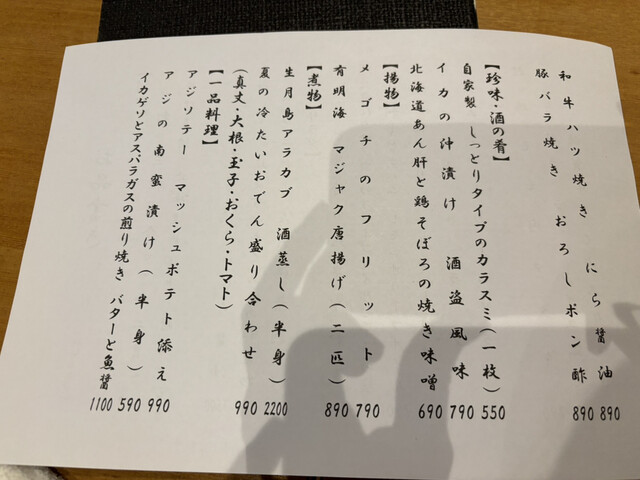 和牛ハツ焼き にら醤油 890
豚バラ焼き おろしポン酢 890
【珍味・酒の肴】
自家製 しっとりタイプのカラスミ(一枚) 550
イカの沖漬け 酒盗風味 790
北海道あん肝と鶏そぼろの焼き味噌 690
【揚物】
メゴチのフリット 790
有明海 マジャク唐揚げ(二匹) 890
【煮物】
生月島アラカブ 酒蒸し(半身) 2200
夏の冷たいおでん盛り合わせ 990
(真丈・大根・玉子・おくら・トマト)
【一品料理】
アジソテー マッシュポテト添え 990
アジの南蛮漬け(半身) 590
イカゲソとアスパラガスの煎り焼き バターと魚醤 1100